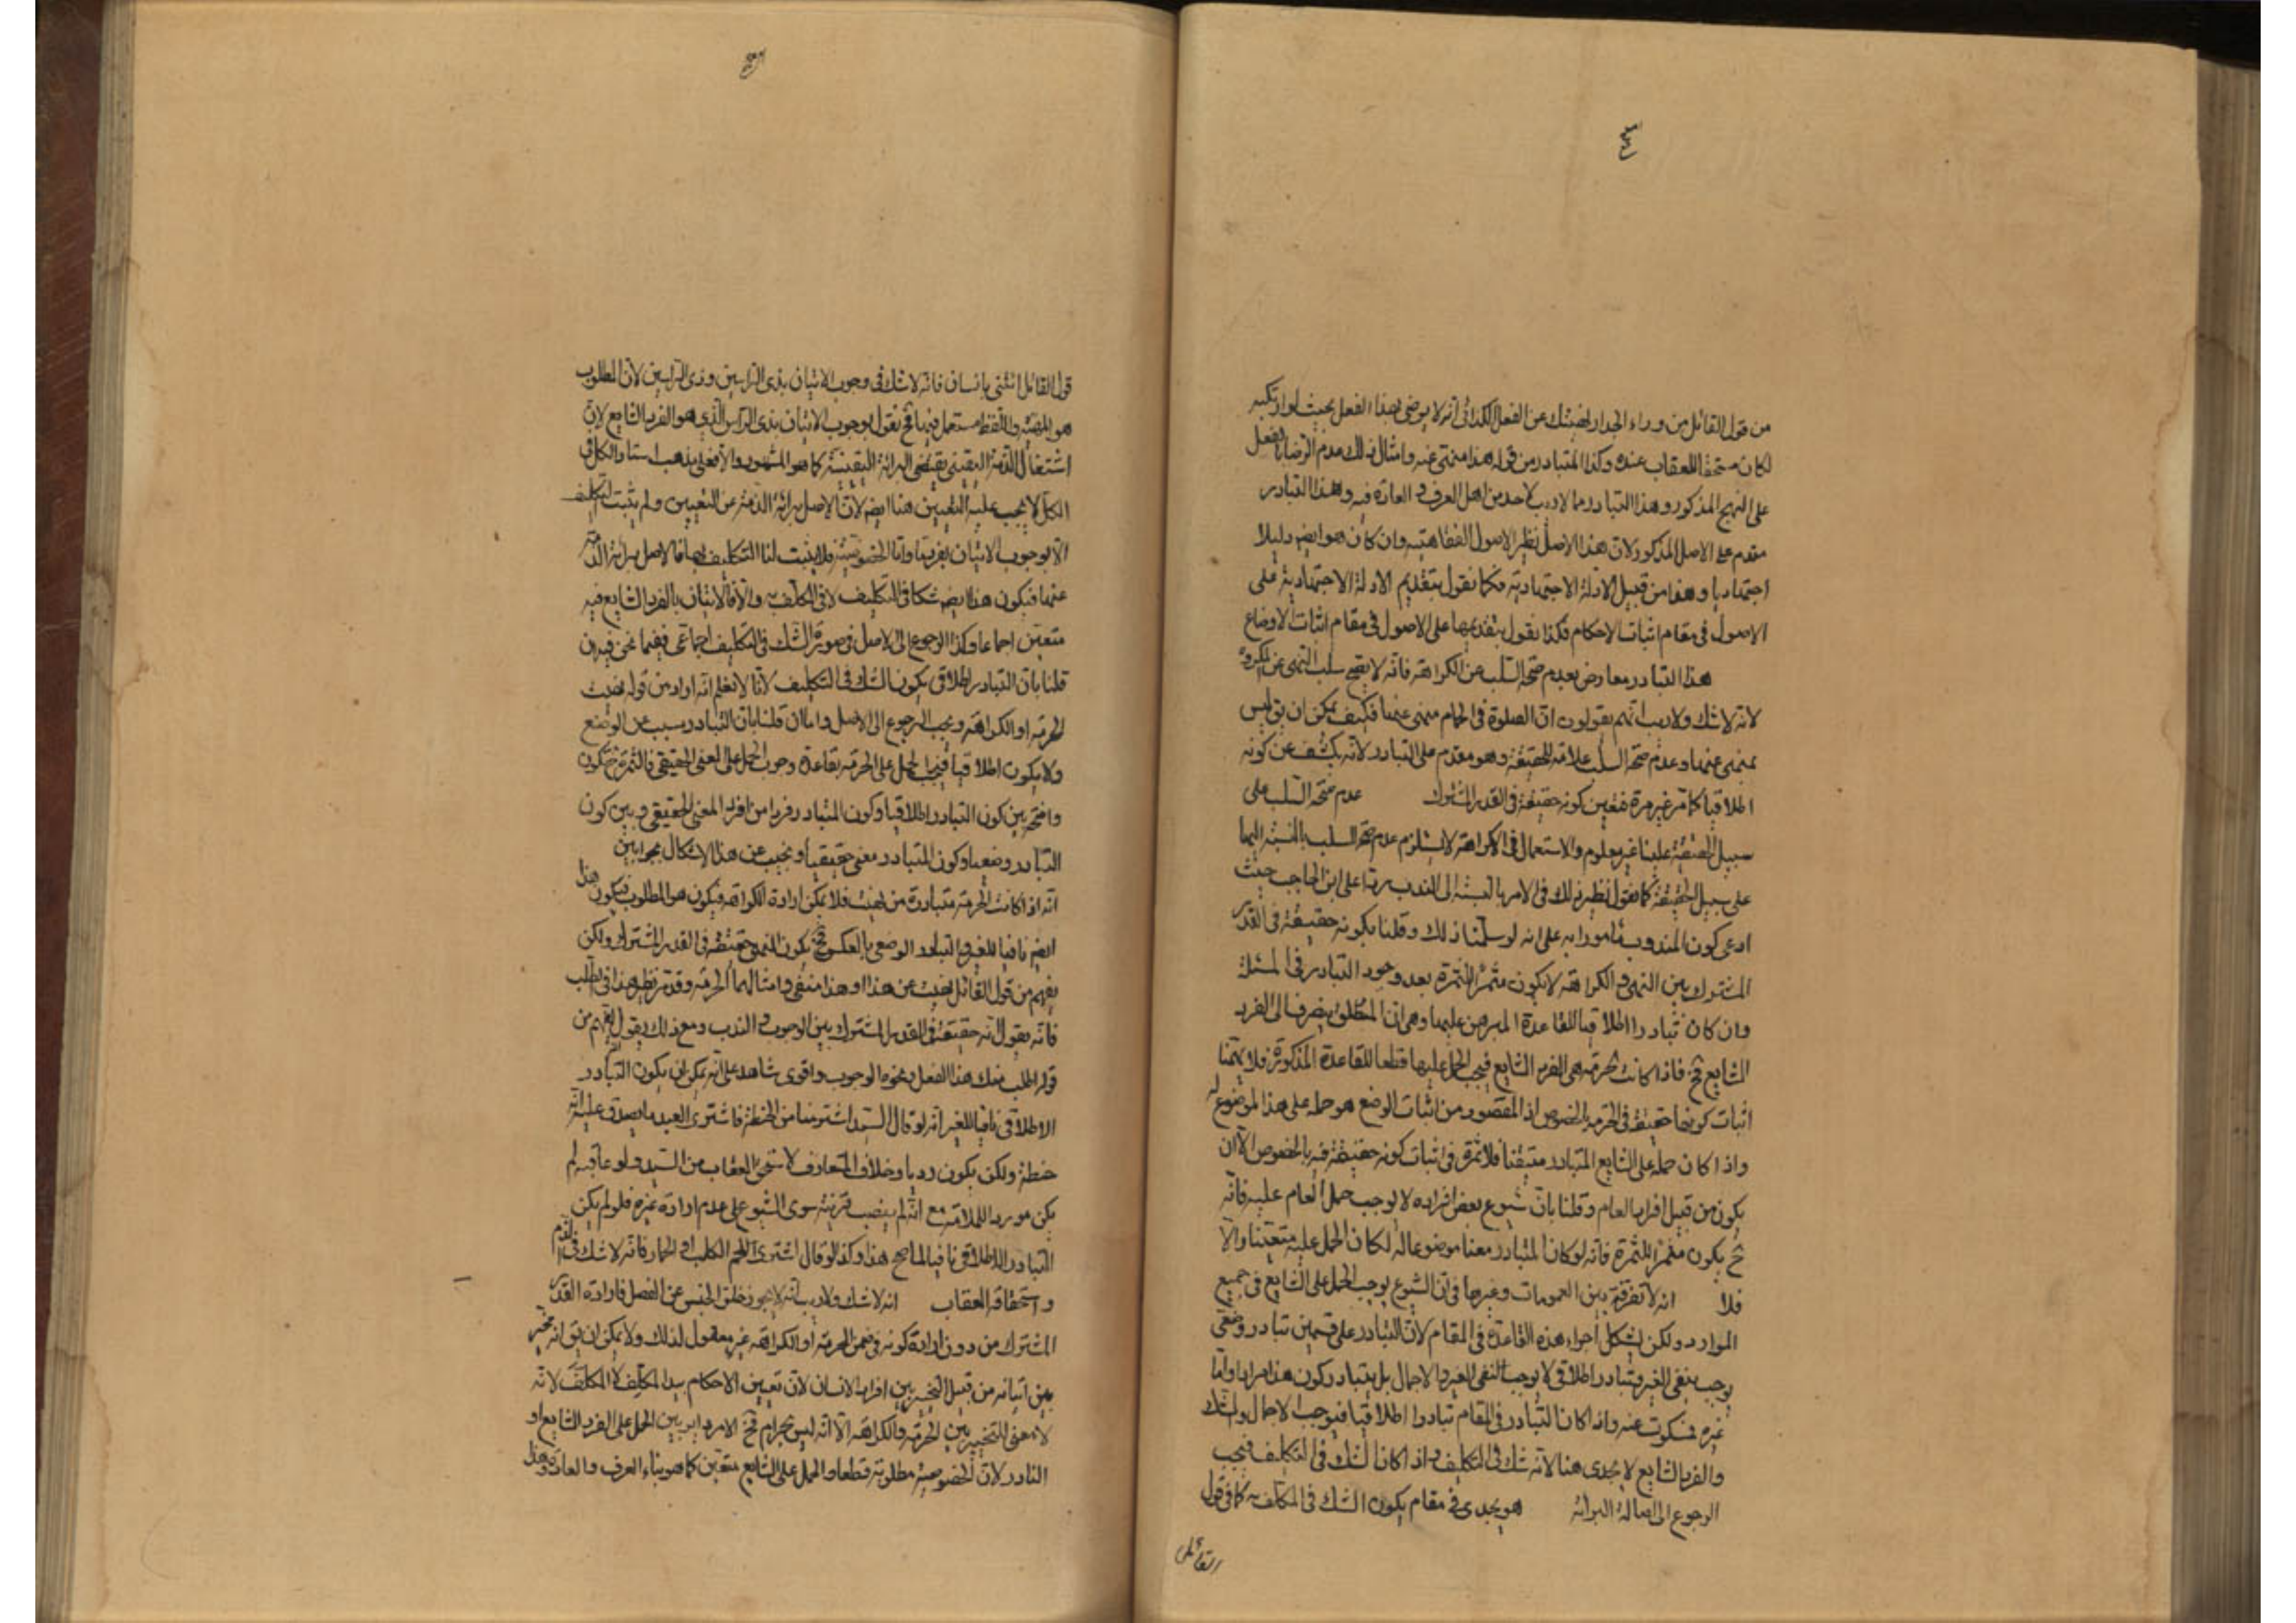 من قول القائل من وراء الجدار نهيتك عن الفعل الكذائى انه لا يرضى بهذا الفعل بحيث لو ارتكبه
لكان مستحقا للعقاب عنده وكذا المتبادر من قوله هذا منهى عنه وامثال ذلك عدم الرضا بالفعل
على النهج المذكور وهذا التبادر مما لا ريب لاحد من اهل العرف و العادة فيه وهذا التبادر
مقدم على الاصل المذكور لان هذا الاصل نظير الاصول الفقاهتيه وان كان هو ايضا دليلا
اجتهاديا وهذا من قبيل الادلة الاجتهادية فكما نقول بتقديم الادلة الاجتهادية على
الاصول فى مقام اثبات الاحكام فكذا نقول بتقديمها على الاصول فى مقام اثبات الاوضاع
هذا التبادر معارض بعدم صحة السلب عن الكراهة فانه لا يصح سلب النهى عن المكروه
لانه لا شك ولا ريب انهم يقولون ان الصلوة فى الحمام منهى عنها فكيف يمكن ان يق ليس
بمنهى عنها وعدم صحة السلب علامة الحقيقة وهو مقدم على التبادر لانه يكشف عن كونه
اطلاقيا كما مر غير مرة فتعين كونه حقيقة فى القدر المشترك عدم صحة السلب على
سبيل الحقيقة علينا غير معلوم والاستعمال فى الكراهة لا يستلزم عدم صحة السلب بالنسبة اليها
على سبيل الحقيقة كما نقول نظير ذلك فى الامر بالنسبة الى الندب ردا على ابن الحاجب حيث
ادعى كون المندوب مأمورا به على انه لو سلمنا ذلك وقلنا بكونه حقيقة فى القدر
المشترك بين النهى و الكراهة لا يكون مثمر الثمرة بعد وجود التبادر فى المسئلة
وان كان تبادرا اطلاقيا للقاعدة المبرهن عليها وهى ان المطلق ينصرف الى الفرد
الشايع فح فاذا كانت الحرمة هى الفرد الشايع فيجب الحمل عليها قطعا للقاعدة المذكورة فلا يهمنا
اثبات كونها حقيقة فى الحرمة بالخصوص اذ المقصود من اثبات الوضع هو حمله على هذا الموضوع له
واذا كان حمله على الشايع المتبادر متيقنا فلا ثمرة فى اثبات كونه حقيقة فيه بالخصوص الا ان
يكون من قبيل افراد العام وقلنا بان شيوع بعض افراده لا يوجب حمل العام عليه فانه
ح يكون مثمر الثمرة فانه لو كان المتبادر معنا موضوعا له لكان الحمل عليه متعينا والا
فلا انه لا تفرقة بين العمومات وغيرها فى ان الشيوع يوجب الحمل على الشايع فى جميع
الموارد ولكن يشكل اجراء هذه القاعدة فى المقام لان التبادر على قسمين تبادر وضعى
يوجب نفى الغير وتبادر اطلاقى لا يوجب النفى الغير و الاجمال بل يتبادر كون هذا مرادا واما
غيره فسكوت عنه واذا كان التبادر فى المقام تبادرا اطلاقيا فيوجب الاجمال والشك
والفرد الشايع لا يجدى هنا لانه شك فى التكليف و اذا كان الشك فى التكليف فيجب
الرجوع الى اصالة البرائة هو يجدى فى مقام يكون الشك فى المكلف به كما فى قول
القائل
قول القائل ائتنى بانسان فانه لا شك فى وجوب الاتيان بذى الراسين وذى الراسين لان المطلوب
هو المهية واللفظ مستعمل فيها فح نقول بوجوب الاتيان بذى الراس الذى هو الفرد الشايع لان
اشتغال الذمة اليقينى يقتضى البرائة اليقينية كما هو المشهور والا فعلى مذهب استاد الكل فى
الكل لا يجب عليه التعيين هنا ايضا لان الاصل برائة الذمة عن التعيين ولم يثبت التكليف
الا بوجوب الاتيان بفرد ما واما الخصوصية فلا يثبت لنا التكليف بها فالاصل برائة الذمة
عنها فيكون هذا ايضا شكا فى التكليف لا فى المكلف به والا فالاتيان بالفرد الشايع فيه
متعين اجماعا وكذا الرجوع الى الاصل فى صورة الشك فى التكليف اجماعى ففيما نحن فيه ان
قلنا بان التبادر اطلاقى يكون الشك فى التكليف لانا لا نعلم انه اراد من قوله نهيت
الحرمة او الكراهة ويجب الرجوع الى الاصل واما ان قلنا بان التبادر سبب عن الوضع
ولا يكون اطلاقيا فيجب الحمل على الحرمة بقاعدة وجوب الحمل على المعنى الحقيقى فالثمرة ح تكون
واضحة بين كون التبادر اطلاقيا وكون المتبادر فردا من افراد المعنى الحقيقى و بين كون
التبادر وضعيا وكون المتبادر معنى حقيقيا و نجيب عن هذا الاشكال بجوابين
انه اذا كانت الحرمة متبادرة من نهيت فلا يمكن ارادة الكراهة فيكون هو المطلوب فيكون هذا
ايضا نافيا للغير و التبادر الوضعى بالعكس فح يكون النهى حقيقة فى القدر المشترك ولكن
يفهم من قول القائل نهيت عن هذا او هذا منهى وامثالهما الحرمة وقد مر نظير هذا فى الطلب
فانه يقول انه حقيقة فى القدر المشترك بين الوجوب و الندب ومع ذلك يقول يفهم من
قوله اطلب منك هذا الفعل ونحوه الوجوب واقوى شاهد على انه يمكن ان يكون التبادر
الاطلاقى نافيا للغير انه لو قال السيد اشتر منا من الحنطة فاشترى العبد ما يصدق عليه انه
حنطة ولكن يكون رديا وخلاف المتعارف لاستحق العقاب من السيد ولو عاقبه لم
يكن موردا للملامة مع انه لم ينصب قرينة سوى الشيوع على عدم ارادة غيره فلو لم يكن
التبادر الاطلاقى نافيا لما صح هذا وكذا لو قال اشترى اللحم الكلب او الحمار فانه لا شك فى الذم
و استحقاقه العقاب انه لا شك ولا ريب انه لا يجوز خلق الجنس عن الفصل فارادة القدر
المشترك من دون ارادة كونه فى ضمن الحرمة او الكراهة غير معقول لذلك ولا يمكن ان يق انه مخير
بين اتيانه من قبيل التخيير بين افراد الانسان لان تعيين الاحكام بيد المكلِّف لا المكلَّف لانه
لا معنى للتخيير بين الحرمة والكراهة الا انه ليس بحرام فح الامر داير بين الحمل على الفرد الشايع او
النادر لان الخصوصية مطلوبة قطعا والحمل على الشايع متعين كما هو بناء العرف والعادة و هذا